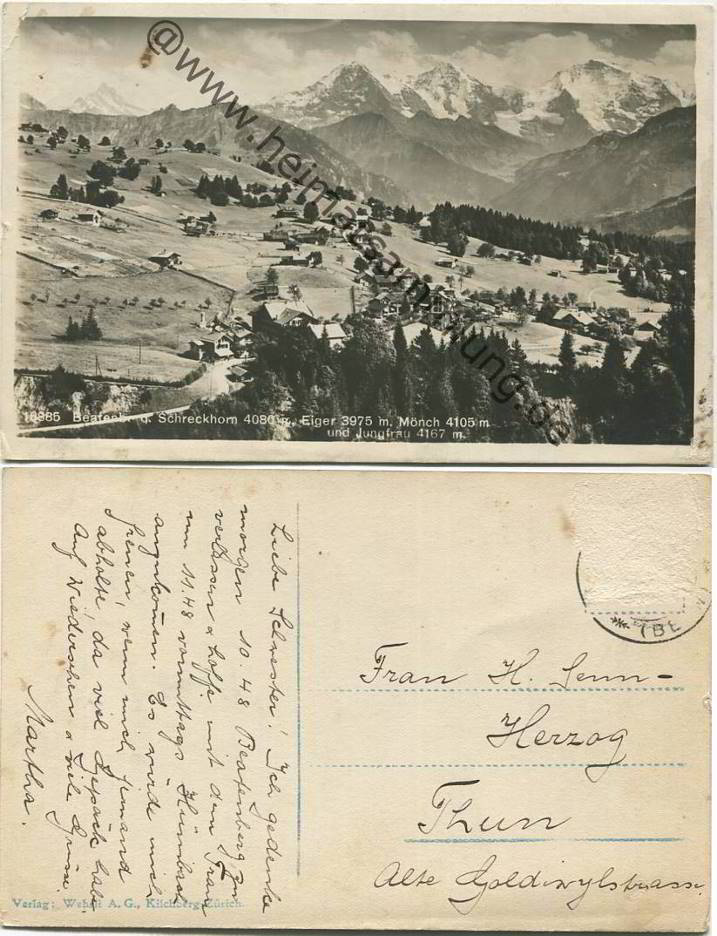 @www.heimatsammlung.de
18985 Beatenb. g. Schreckhorn 4080 m, Eiger 3975 m. Mönch 4105 m
und Jungfrau 4167 m.
Liebe Schwester! Ich gedenke
morgen 10.48 Beatenberg zu
verlassen & hoffe mit dem
um 11.48 vormittags
angekommen. Es würde mich
freuen, wenn mich Jemand
abholte, da viel Gepäck habe.
Auf Wiedersehen & viele Grüsse
Martha.
Frau H. Senn-
Herzog
Thun
Alte Goldiwylstrasse.
Verlag: Wehrli A. G., Kilchberg-Zürich